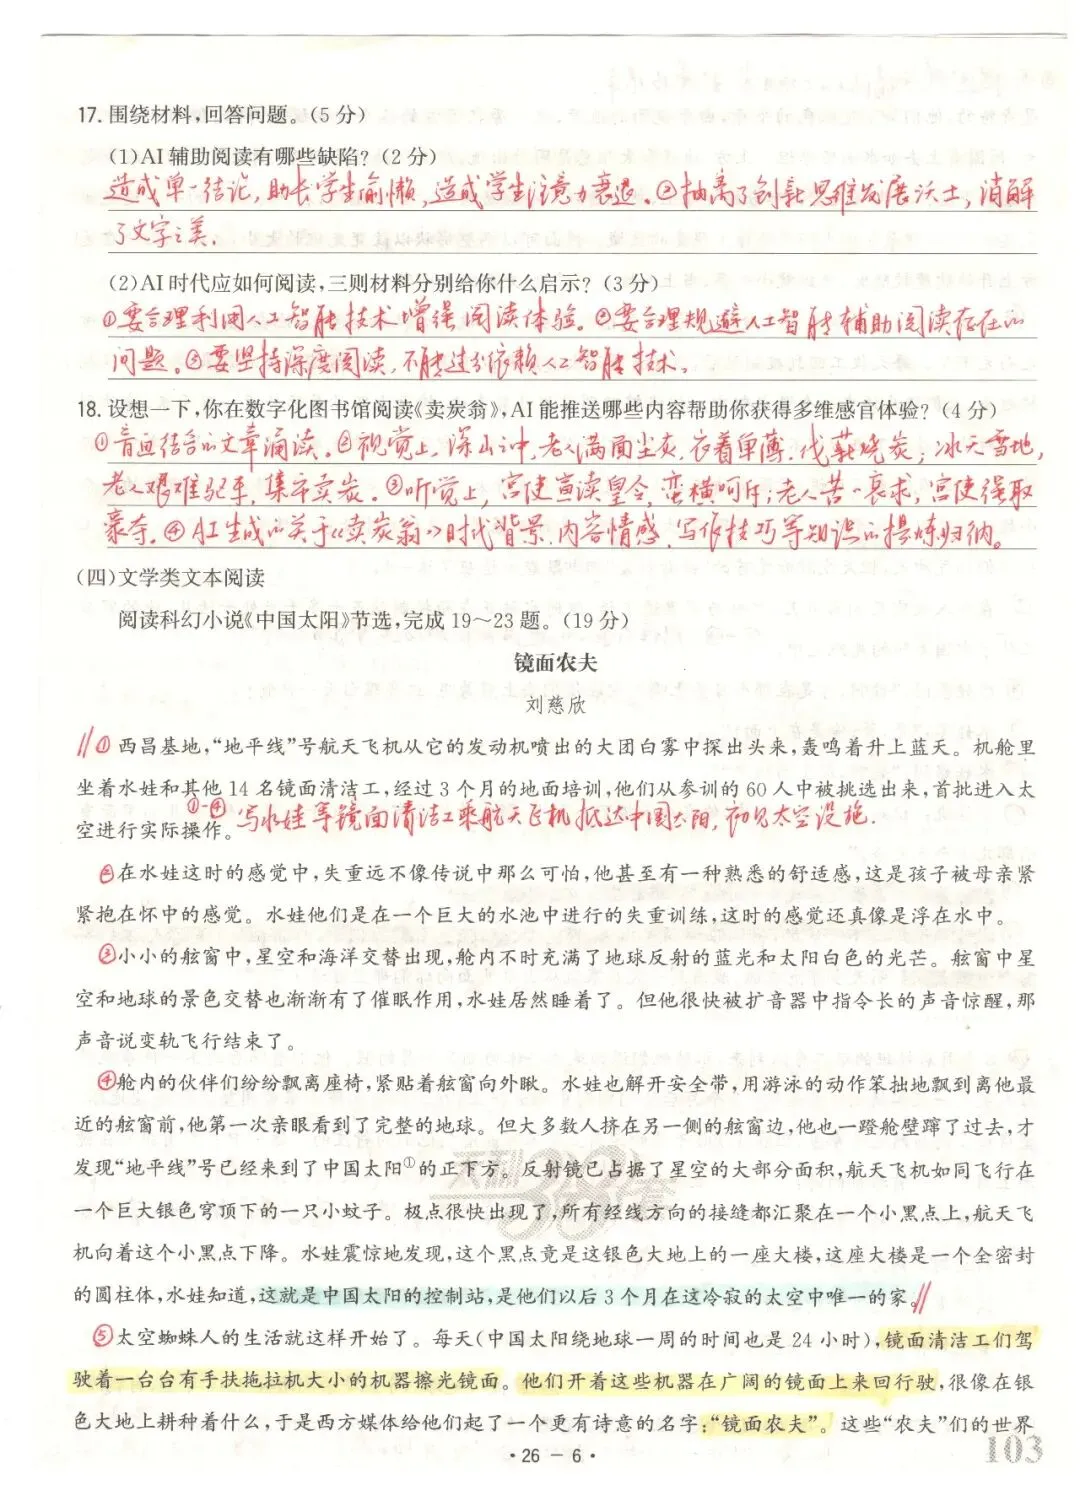 17. 围绕材料,回答问题。(5 分)
(1)AI 辅助阅读有哪些缺陷? (2 分)
造成单一结论,助长学生偷懒,造成学生注意力衰退。②抽离了创新思维发展沃土,消解
了文字之美.
(2)AI 时代应如何阅读,三则材料分别给你什么启示? (3 分)
①要合理利用人工智能技术增强阅读体验。②要合理规避人工智能辅助阅读存在的
问题。③要坚持深度阅读,不能过分依赖人工智能技术。
18. 设想一下,你在数字化图书馆阅读《卖炭翁》,AI 能推送哪些内容帮助你获得多维感官体验? (4 分)
①音画结合的文章诵读。②视觉上,深山之中,老人满面尘灰,衣着单薄,伐薪烧炭;冰天雪地,
老人艰难驱车,集市卖炭。③听觉上,宫使宣读皇令,蛮横呵斥;老人苦苦哀求,宫使强取
豪夺。④AI生成的关于《卖炭翁》时代背景、内容情感、写作技巧等知识的提炼归纳。
(四)文学类文本阅读
阅读科幻小说《中国太阳》节选,完成 19~23 题。(19 分)
镜面农夫
刘慈欣
①西昌基地,“地平线”号航天飞机从它的发动机喷出的大团白雾中探出头来,轰鸣着升上蓝天。机舱里
坐着水娃和其他 14 名镜面清洁工,经过 3 个月的地面培训,他们从参训的 60 人中被挑选出来,首批进入太
空进行实际操作。①-④ 写水娃等镜面清洁工乘航天飞机抵达中国太阳,初见太空设施.
②在水娃这时的感觉中,失重远不像传说中那么可怕,他甚至有一种熟悉的舒适感,这是孩子被母亲紧
紧抱在怀中的感觉。水娃他们是在一个巨大的水池中进行的失重训练,这时的感觉还真像是浮在水中。
③小小的舷窗中,星空和海洋交替出现,舱内不时充满了地球反射的蓝光和太阳白色的光芒。舷窗中星
空和地球的景色交替也渐渐有了催眠作用,水娃居然睡着了。但他很快被扩音器中指令长的声音惊醒,那
声音说变轨飞行结束了。
④舱内的伙伴们纷纷飘离座椅,紧贴着舷窗向外瞅。水娃也解开安全带,用游泳的动作笨拙地飘到离他最
近的舷窗前,他第一次亲眼看到了完整的地球。但大多数人挤在另一侧的舷窗边,他也一蹬舱壁蹿了过去,才
发现“地平线”号已经来到了中国太阳①的正下方。反射镜已占据了星空的大部分面积,航天飞机如同飞行在
一个巨大银色穹顶下的一只小蚊子。极点很快出现了,所有经线方向的接缝都汇聚在一个小黑点上,航天飞
机向着这个小黑点下降。水娃震惊地发现,这个黑点竟是这银色大地上的一座大楼,这座大楼是一个全密封
的圆柱体,水娃知道,这就是中国太阳的控制站,是他们以后 3 个月在这冷寂的太空中唯一的家。
⑤太空蜘蛛人的生活就这样开始了。每天(中国太阳绕地球一周的时间也是 24 小时),镜面清洁工们驾
驶着一台台有手扶拖拉机大小的机器擦光镜面。他们开着这些机器在广阔的镜面上来回行驶,很像在银
色大地上耕种着什么,于是西方媒体给他们起了一个更有诗意的名字:“镜面农夫”。这些“农夫”们的世界
· 26 — 6 ·
103